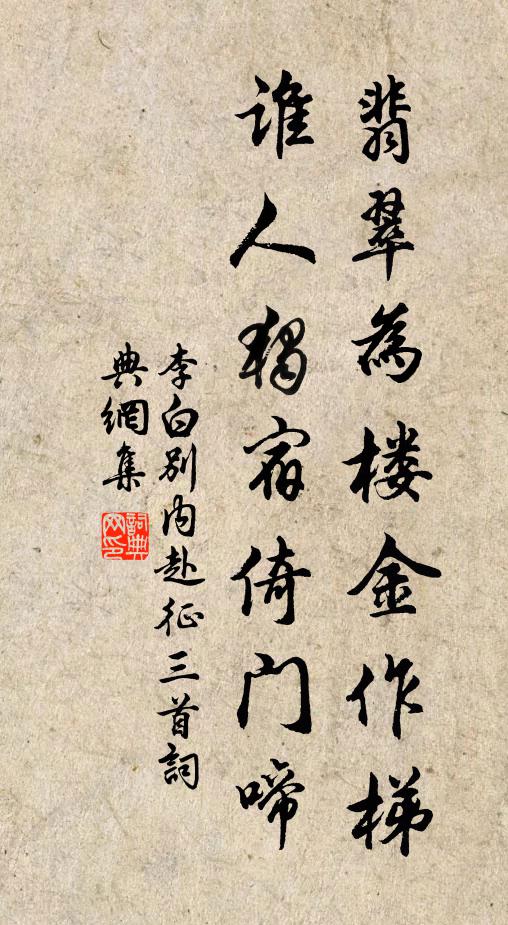 翡翠為楼金作梯
谁人独宿倚门啼
李白别内赴征三首詞
典網集
詞典网印